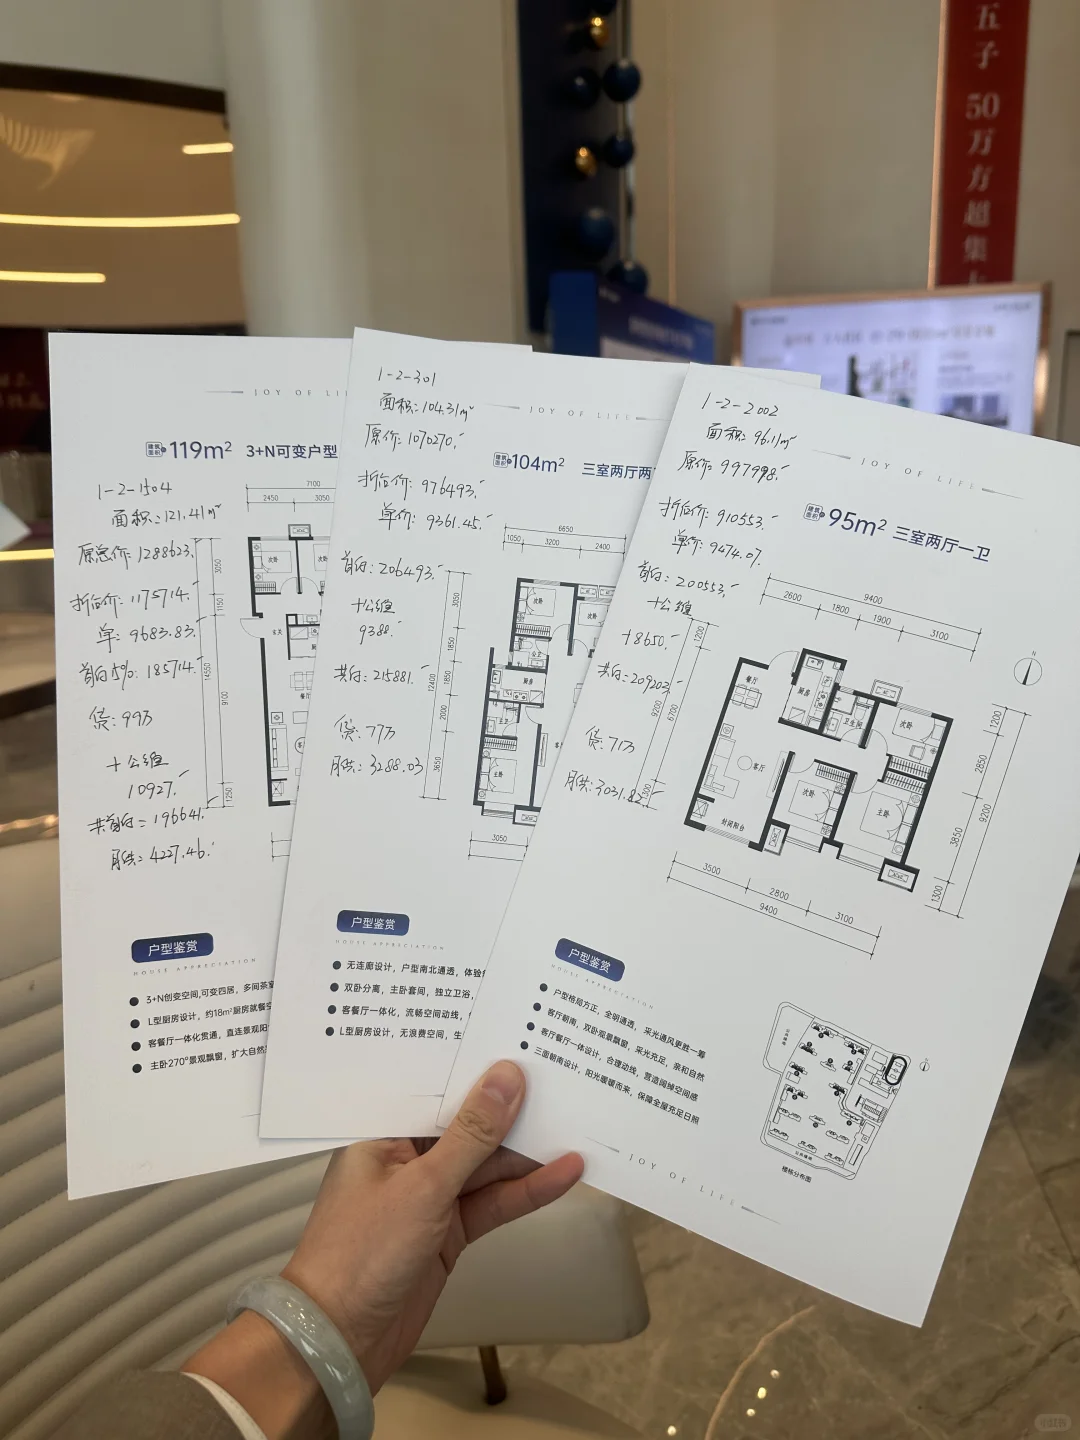 五子 50万方超集
JOY OF LI
建筑面积 119m² 3+N可变户型
1-2-1504
面积:121.41m²
原总价:1288623.
折后价:1175714.
单:9683.83.
首付15%:185714.
贷:99万
+公维
10927.
共首付=196641.
月供:4227.46.
7100
2450
3050
3050
1150
14550
9100
1250
次卧
次卧
玄关
餐厅
户型鉴赏
HOUSE APPRECIATION
3+N创变空间,可变四居,多间茶室
L型厨房设计,约18m²厨房就餐空
客餐厅一体化贯通,直连景观阳
主卧270°景观飘窗,扩大自然
JOY OF LIFE
1-2-301
面积:104.31m²
原价:1070270.
建筑面积 104m² 三室两厅两
折后价:976493.
单价:9361.45.
首付:206493.
+公维
9388.
共付:215881.
贷:77万
月供:3288.03
6650
1050
3200
2400
3050
1850
1850
12400
2000
3650
3050
次卧
次卧
厨房
主卧
户型鉴赏
HOUSE APPRECIATION
无连廊设计,户型南北通透,体验
双卧分离,主卧套间,独立卫浴,
客餐厅一体化,流畅空间动线,
L型厨房设计,无浪费空间,生
JOY OF LIFE
1-2-2002
面积:96.11m²
原价:997998.
建筑面积 95m² 三室两厅一卫
折后价:910553.
单价:9474.07.
首付:200553.
+公维
+8650.
共付:209203.
贷:71万
月供:3031.82.
9400
2600
1800
1900
3100
1200
9200
6700
1300
1200
2850
9200
3850
1300
3500
2800
3100
9400
N
餐厅
厨房
卫生间
次卧
客厅
次卧
主卧
封闭阳台
户型鉴赏
HOUSE APPRECIATION
户型格局方正,全明通透,采光通风更胜一筹
客厅朝南,双卧观景飘窗,采光充足,亲和自然
客厅餐厅一体设计,合理动线,营造阔绰空间感
三面朝南设计,阳光暖暖而来,保障全屋充足日照
楼栋分布图
JOY OF LIFE
小红书